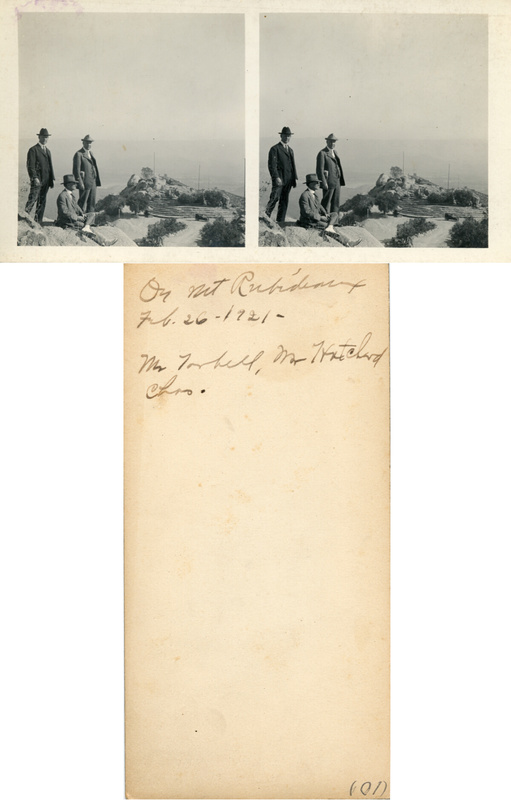 On Mt Rubideaux
Feb. 26-1921-
Mr Torbell, Mr Hotchord
Chas.
(01)